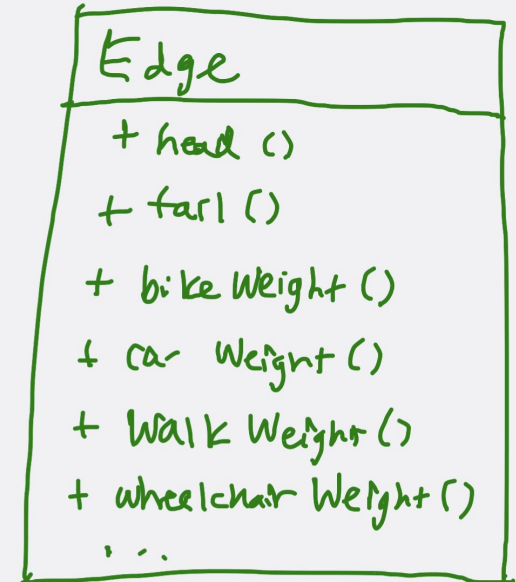 Edge
+ head ()
+ tail ()
+ bike Weight ()
+ car Weight ()
+ Walk Weight ()
+ wheelchair Weight ()
...